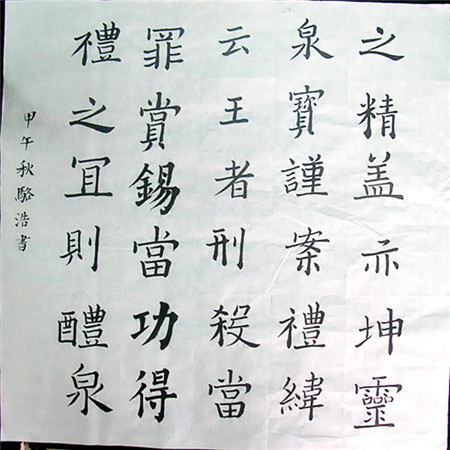 之精盖亦坤靈
泉寶謹案禮緯
云王者刑殺當
罪賞錫當功得
禮之冝則醴泉
甲午秋駱浩書